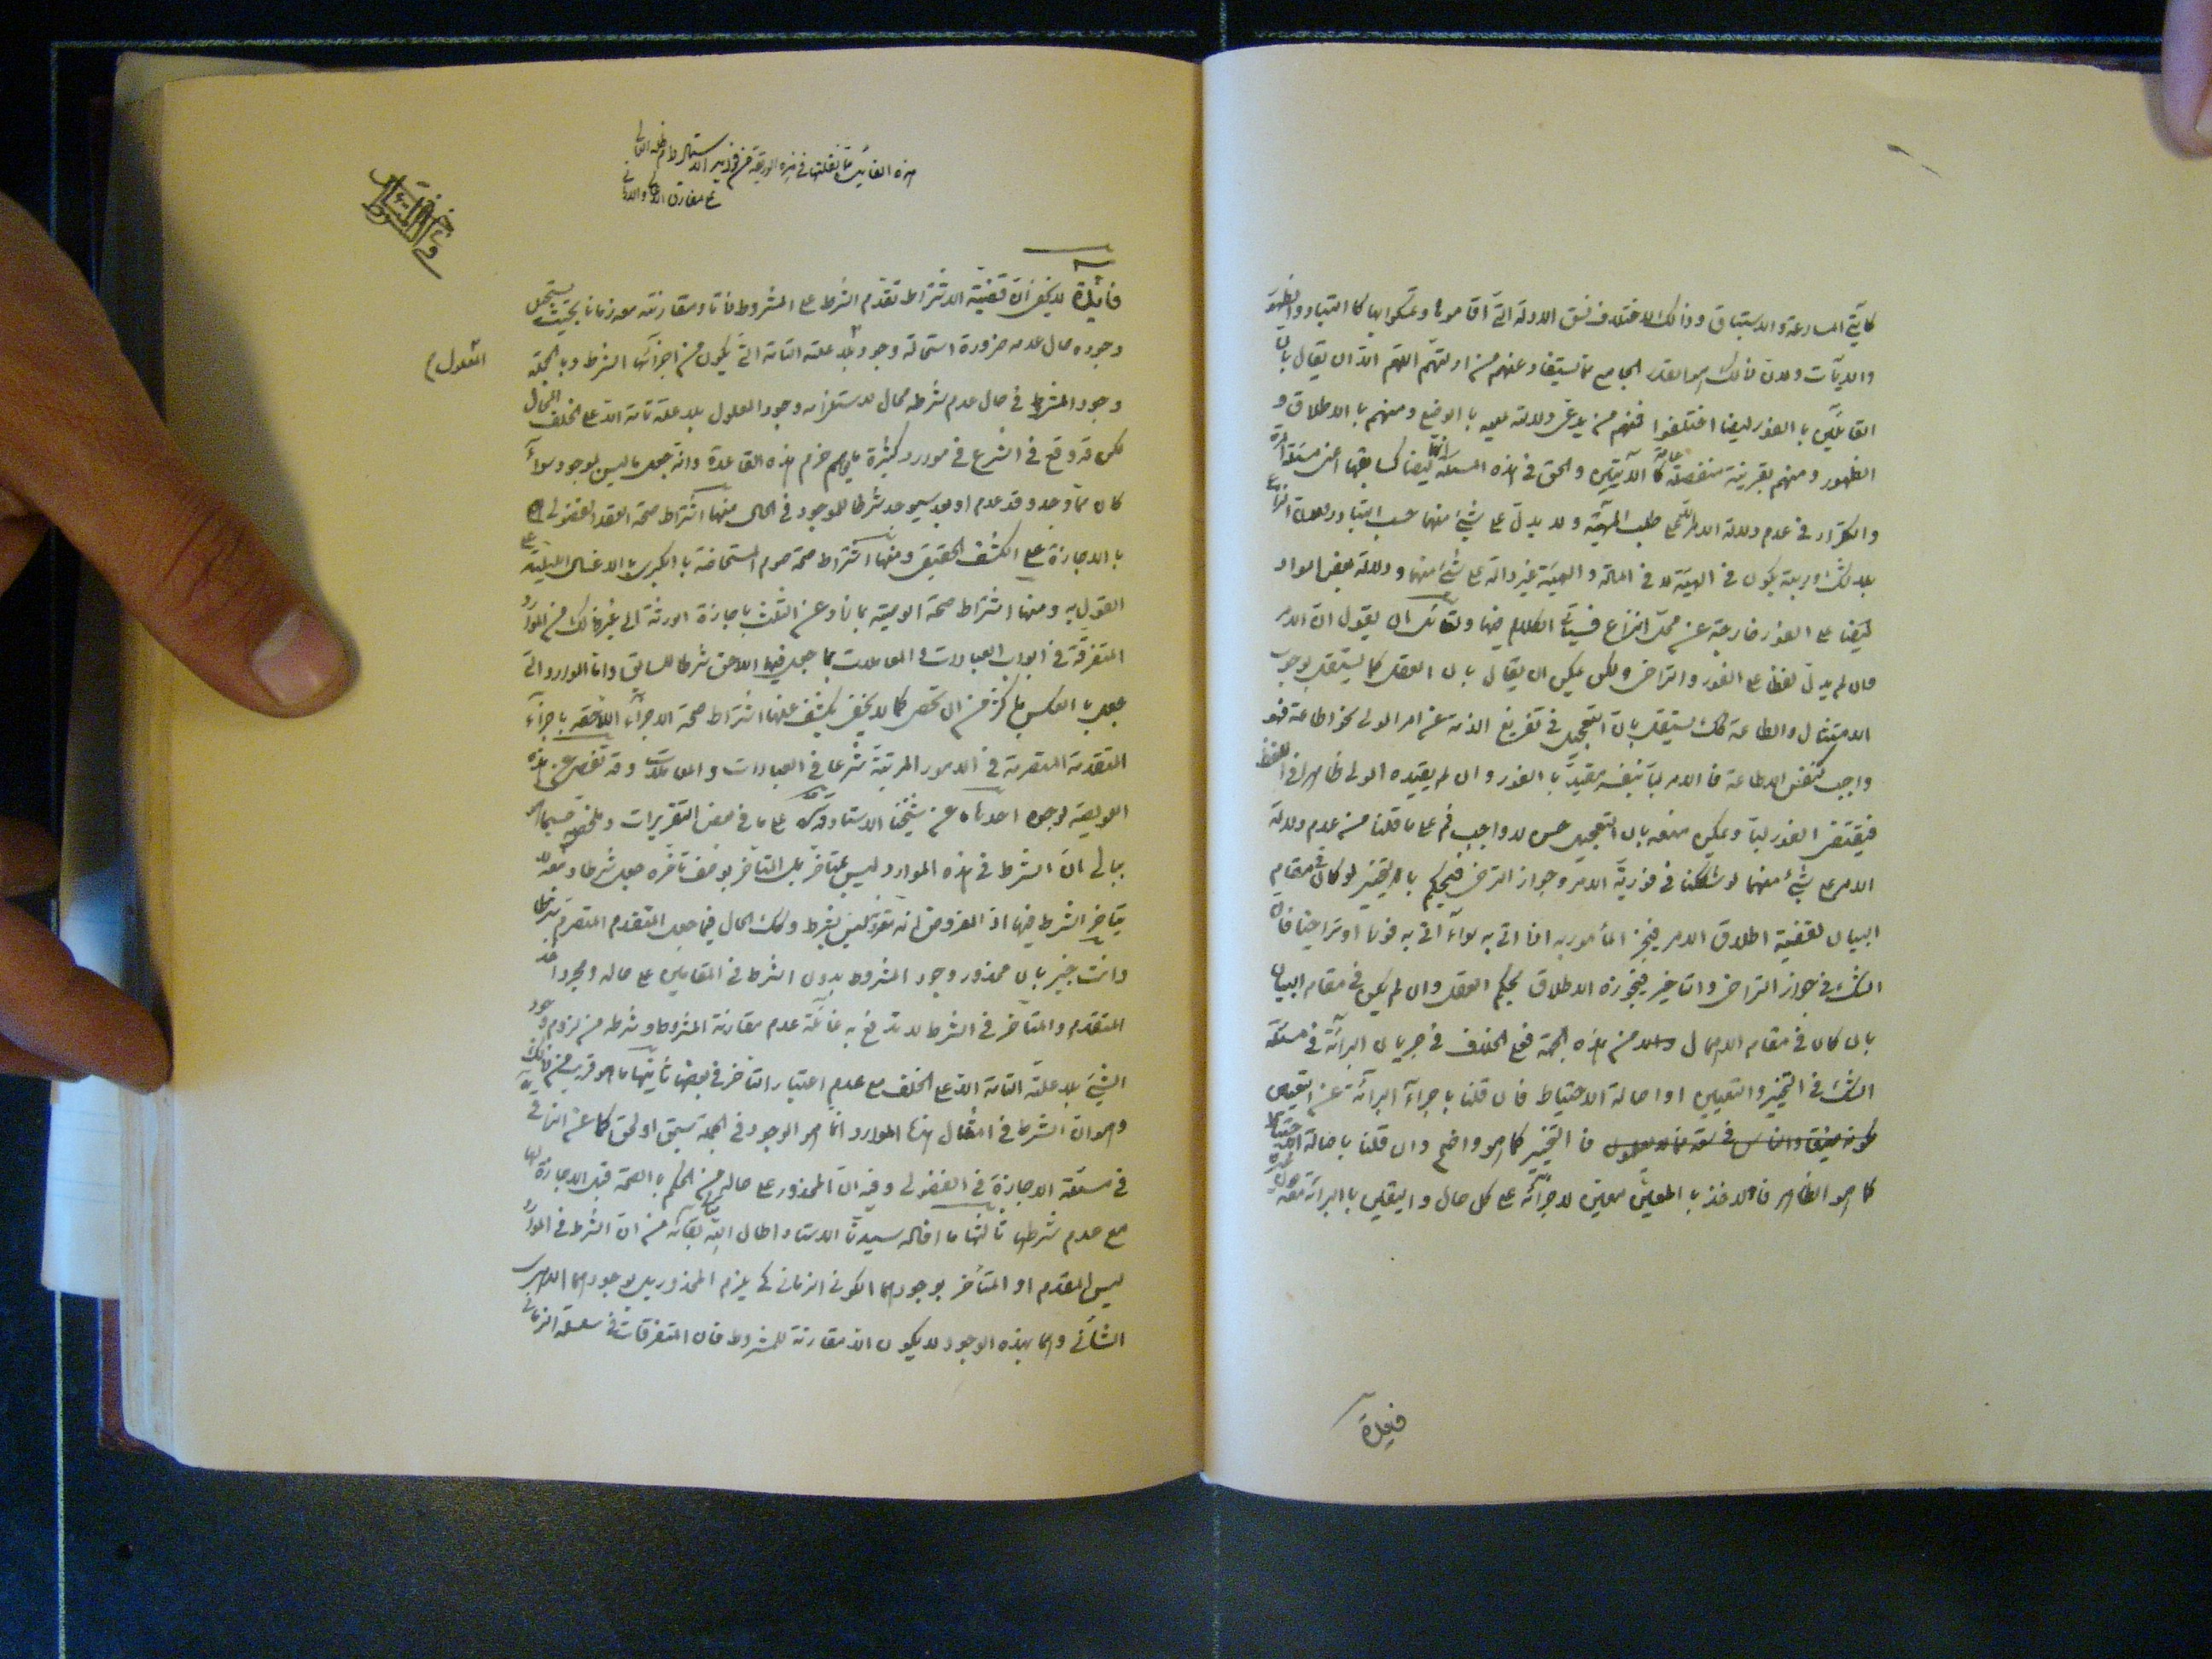 كآيتي المسارعة والاستباق وذلك لاختلاف نسق الادلة التي اقاموها وتمسكوا بها كالتبادر والظهور
والآيات ولان ذلك هو القدر الجامع مما يستفاد عنهم من ادلتهم اللهم الا ان يقال بان
القائلين بالفور ايضا اختلفوا فمنهم من يدعى دلالته عليه بالوضع ومنهم بالاطلاق و
الظهور ومنهم بقرينة منفصلة عامة كالآيتين والحق في هذه المسئلة ايضا كسابقها اعنى مسئلة المرة
والتكرار في عدم دلالة الامر الا على طلب المهية ولا يدل على شئ منهما بحسب التبادر
بلا شك وريبة يكون في الهيئة لا في المادة والهيئة غير دالة على شئ منهما ودلالة بعض المواد
ايضا على الفور خارجة عن محل النزاع فسيأتى الكلام فيها ولقائل ان يقول ان الامر
وان لم يدل لفظا على الفور والتراخى ولكن يمكن ان يقال بان العقل كما يستقل بوجوب
الامتثال والطاعة كذلك يستقل بان التعجيل في تفريغ الذمة عن امر المولى نحو اطاعة فهو
واجب كنفس الاطاعة فالامر لبا بنفسه مقيد بالفور وان لم يقيده المولى ظاهرا في اللفظ
فيقتضى الفور لبا ويمكن منعه بان التعجيل حسن لا واجب ثم على ما قلنا من عدم دلالة
الامر على شئ منهما لو شككنا في فورية الامر وجواز التراخى فيحكم بالتخيير لو كان في مقام
البيان لقضية اطلاق الامر فيجزى المأمور به اذا اتى به سواء اتى به فورا او تراخيا فان
الشك في جواز التراخى والتاخير فيجوزه الاطلاق بحكم العقل وان لم يكن في مقام البيان
بان كان في مقام الاهمال ولو من هذه الجهة فمع الخلاف في جريان البرائة في مسئلة
الشك في التخيير والتعيين او اصالة الاحتياط فان قلنا باجراء البرائة عن التعيين
فالتخيير كما هو واضح وان قلنا باصالة الاحتياط
كما هو الظاهر فالاخذ بالمعين معين لاجزائه على كل حال واليقين بالبرائة معه
فائدة
هذه الفائدة مما نقلتها في هذه الوريقة من فوائد الاستاد دام ظله العالى
على مفارق الاعالى والادانى
في الشرط المتاخر
فائدة لا يخفى ان قضية الاشتراط تقدم الشرط على المشروط ذاتا ومقارنته معه زمانا بحيث يستحيل
وجوده حال عدمه ضرورة استحالة وجود المعلول بلا علته التامة التى يكون من اجزائها الشرط وبالجملة
وجود المشروط في حال عدم شرطه محال لاستلزامه وجود المعلول بلا علة تامة الا على الخلف المحال
لكن قد وقع في الشرع في موارد كثيرة ما يوهم خرم هذه القاعدة وانه جعل ما ليس بموجود سواء
كان مما وجد وقد عدم او بعد سيوجد شرطا للموجود في الحال منها اشتراط صحة العقد الفضولى
بالاجازة على الكشف الحقيقى ومنها اشتراط صحة صوم المستحاضة بالكبرى بالاغسال الليلية على
القول به ومنها اشتراط صحة الوصية بما زاد عن الثلث باجازة الورثة الى غير ذلك من الموارد
المتفرقة في ابواب العبادات والمعاملات مما جعل فيها اللاحق شرطا للسابق واما الموارد التى
جعل بالعكس فاكثر من ان تحصى كما لا يخفى يكشف عنها اشتراط صحة الاجزاء اللاحقة باجزاء
المتقدمة المتصرمة في الامور المرتبة شرعا في العبادات والمعاملات وقد تفصى عن هذه
العويصة بوجوه احدها ما عن شيخنا الاستاد قدس سره على ما في بعض التقريرات وملخصه حسبما هو
ببالى ان الشرط في هذه الموارد ليس بمتاخر بل المتاخر بوصف تاخره جعل شرطا ومعه لا
يتاخر الشرط فيها اذ المفروض انه بنفسه ليس بشرط وكذلك الحال فيما جعل المتقدم المتصرم شرطا
وانت خبير بان محذور وجود المشروط بدون الشرط في المقامين على حاله ومجرد اخذ
المتقدم والمتاخر في الشرط لا يندفع به غائلة عدم مقارنة المشروط وشرطه من لزوم وجود
الشئ بلا علته التامة الا على الخلف مع عدم اعتبار التاخر في بعضها ثانيها ما هو قريب من ذلك
وهو ان الشرط في امثال هذه الموارد انما هو الوجود في الجملة سبق او لحق كما عن النراقى
في مسئلة الاجازة في الفضولى وفيه ان المحذور على حاله من الحكم بالصحة قبل الاجازة
مع عدم شرطها ثالثها ما افاده سيدنا الاستاد اطال الله بقائه من ان الشرط في الموارد
ليس المقدم او المتأخر بوجودهما الكونى الزمانى كى يلزم المحذور بل بوجودهما الدهرى
الشأنى وهما بهذه الوجود لا يكون الا مقارنة للمشروط فان المتفرقات في سلسلة الزمان